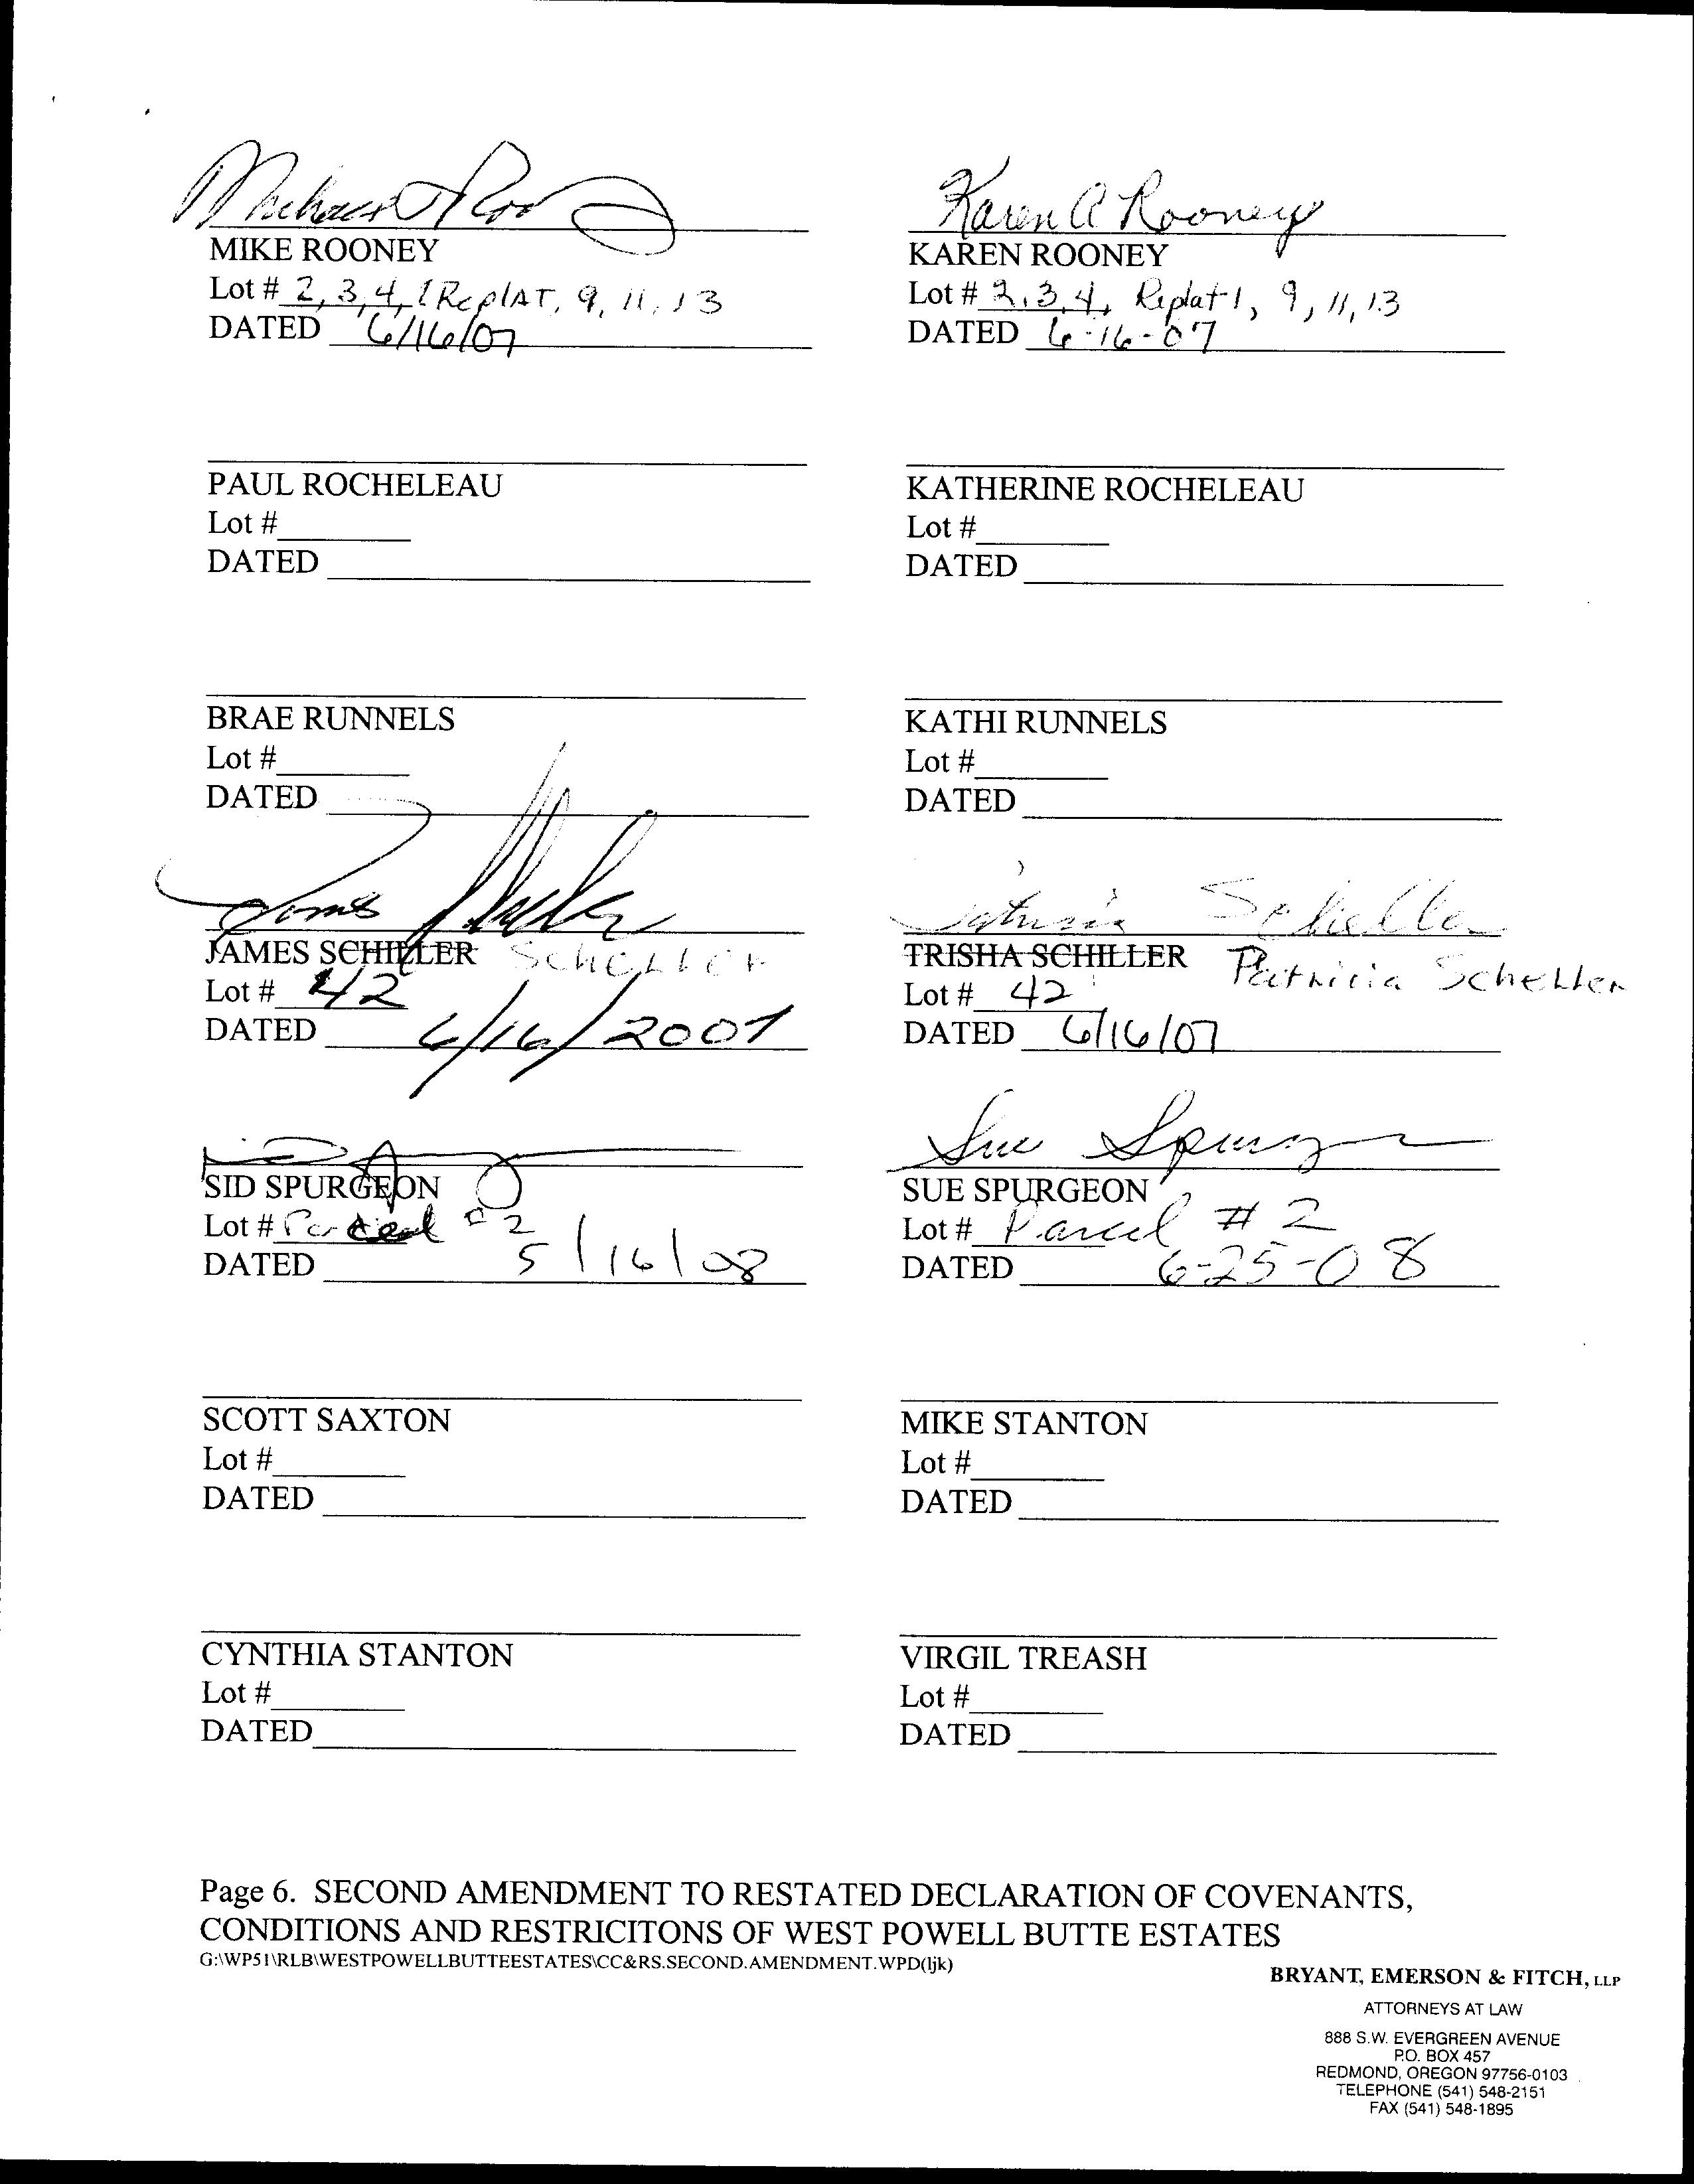 Karen A Rooney
MIKE ROONEY
KAREN ROONEY
Lot # 2, 3, 4, 1 ReplAT, 9, 11, 13
Lot # 2, 3, 4, Replat 1, 9, 11, 13
DATED 6/16/07
DATED 6-16-07
PAUL ROCHELEAU
KATHERINE ROCHELEAU
Lot #
Lot #
DATED
DATED
BRAE RUNNELS
KATHI RUNNELS
Lot #
Lot #
DATED
DATED
James
Patricia Scheller
JAMES SCHILLER Scheller
TRISHA SCHILLER Patricia Scheller
Lot # 42
Lot # 42
DATED 6/16/2007
DATED 6/16/07
Sue Spurgeon
SID SPURGEON
SUE SPURGEON
Lot # Parcel # 2
Lot # Parcel # 2
DATED 5/16/08
DATED 6-25-08
SCOTT SAXTON
MIKE STANTON
Lot #
Lot #
DATED
DATED
CYNTHIA STANTON
VIRGIL TREASH
Lot #
Lot #
DATED
DATED
Page 6. SECOND AMENDMENT TO RESTATED DECLARATION OF COVENANTS,
CONDITIONS AND RESTRICITONS OF WEST POWELL BUTTE ESTATES
G:\WP51\RLB\WESTPOWELLBUTTEESTATES\CC&RS.SECOND.AMENDMENT.WPD(ljk)
BRYANT, EMERSON & FITCH, LLP
ATTORNEYS AT LAW
888 S.W. EVERGREEN AVENUE
P.O. BOX 457
REDMOND, OREGON 97756-0103
TELEPHONE (541) 548-2151
FAX (541) 548-1895